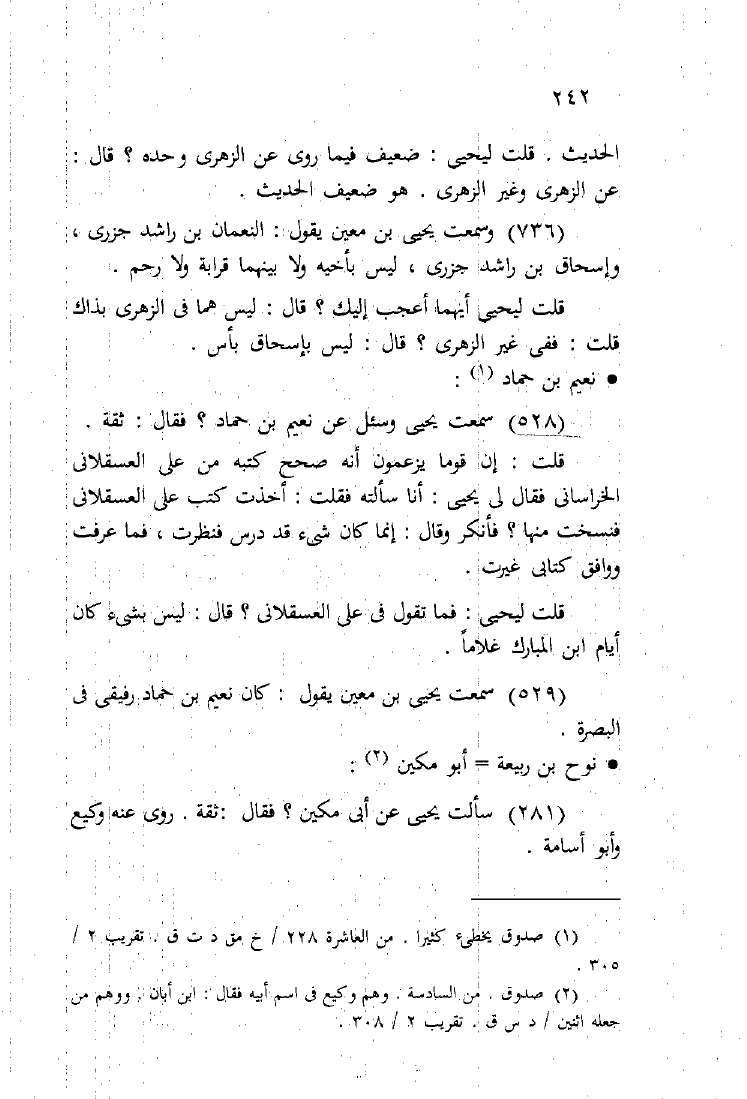 ٢٤٢
الحديث . قلت ليحيى : ضعيف فيما روى عن الزهرى وحده ؟ قال :
عن الزهرى وغير الزهرى . هو ضعيف الحديث .
(٧٣٦) وسمعت يحيى بن معين يقول : النعمان بن راشد جزرى ،
وإسحاق بن راشد جزرى ، ليس بأخيه ولا بينهما قرابة ولا رحم .
قلت ليحيى أيهما أعجب إليك ؟ قال : ليس هما فى الزهرى بذاك
قلت : ففى غير الزهرى ؟ قال : ليس بإسحاق بأس .
• نعيم بن حماد (١) :
(٥٢٨) سمعت يحيى وسئل عن نعيم بن حماد ؟ فقال : ثقة .
قلت : إن قوما يزعمون أنه صحح كتبه من على العسقلانى
الخراسانى فقال لى يحيى : أنا سألته فقلت : أخذت كتب على العسقلانى
فنسخت منها ؟ فأنكر وقال : إنما كان شىء قد درس فنظرت ، فما عرفت
ووافق كتابى غيرت .
قلت ليحيى : فما تقول فى على العسقلانى ؟ قال : ليس بشىء كان
أيام ابن المبارك غلاماً .
(٥٢٩) سمعت يحيى بن معين يقول : كان نعيم بن حماد رفيقى فى
البصرة .
• نوح بن ربيعة = أبو مكين (٢) :
(٢٨١) سألت يحيى عن أبى مكين ؟ فقال : ثقة . روى عنه وكيع
وأبو أسامة .
(١) صدوق يخطىء كثيرا . من العاشرة ٢٢٨ / خ مق د ت ق . تقريب ٢ /
٣٠٥ .
(٢) صدوق . من السادسة . وهم وكيع فى اسم أبيه فقال : ابن أبان . ووهم من
جعله اثنين / د س ق . تقريب ٢ / ٣٠٨ .